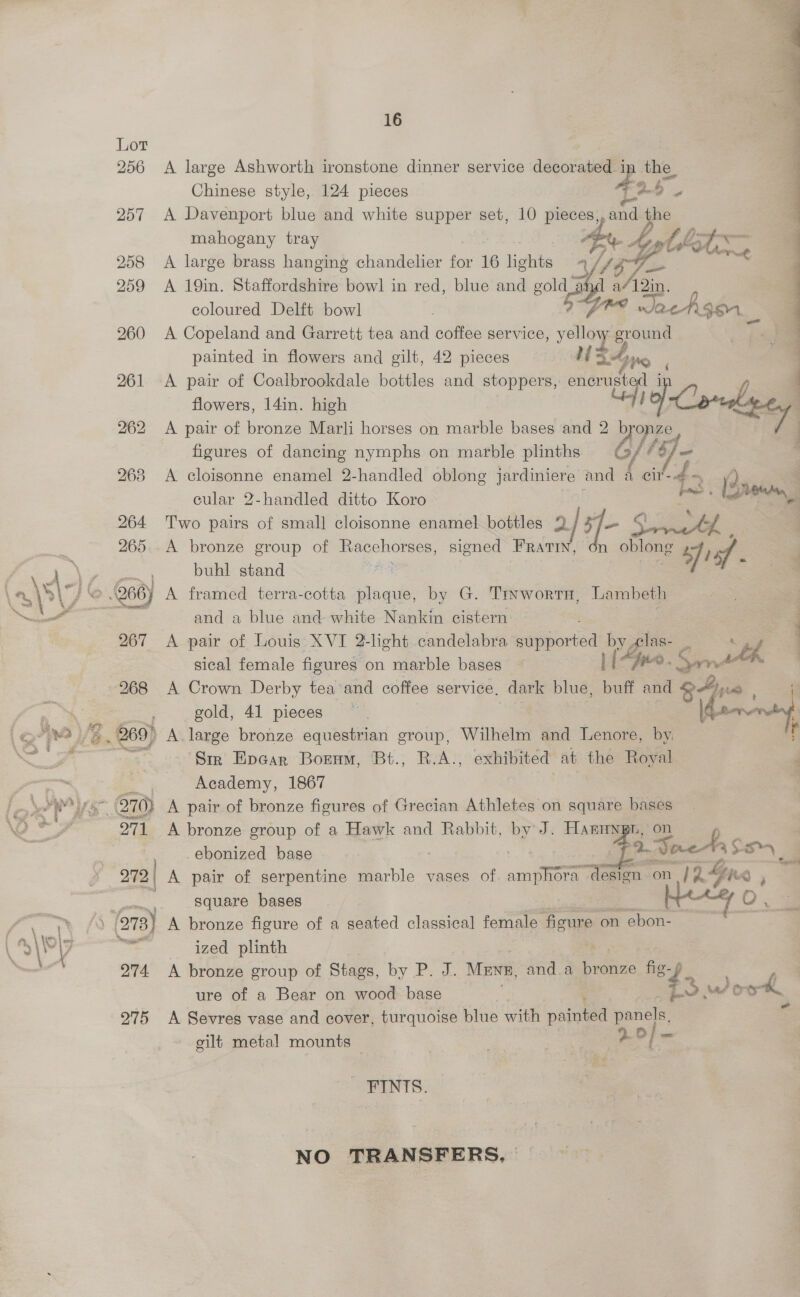 16
Lot
256 A large Ashworth ironstone dinner service decorated in the
Chinese style, 124 pieces
257 A Davenport blue and white supper set, 10 pieces, and the
mahogany tray
258 A large brass hanging chandelier for 16 lights
259 A 19in. Staffordshire bowl in red, blue and gold and a 12in.
coloured Delft bowl Jackson
260 A Copeland and Garrett tea and coffee service, yellow ground
painted in flowers and gilt, 42 pieces
261 A pair of Coalbrookdale bottles and stoppers, encrusted in
flowers, 14in. high
262 A pair of bronze Marli horses on marble bases and 2 bronze
figures of dancing nymphs on marble plinths
263 A cloisonne enamel 2-handled oblong jardiniere and a cir-
cular 2-handled ditto Koro
264 Two pairs of small cloisonne enamel bottles 2/5/- Smith
265 A bronze group of Racehorses, signed Fratin, on oblong
buhl stand
266 A framed terra-cotta plaque, by G. Tinworth, Lambeth
and a blue and white Nankin cistern
267 A pair of Louis XVI 2-light candelabra supported by clas-
sical female figures on marble bases Smith
268 A Crown Derby tea and coffee service, dark blue, buff and
gold, 41 pieces
269 A large bronze equestrian group, Wilhelm and Lenore, by
Sir Edgar Boehm, Bt., R.A., exhibited at the Royal
Academy, 1867
270 A pair of bronze figures of Grecian Athletes on square bases
271 A bronze group of a Hawk and Rabbit, by J. Hareingh, on
ebonized base Jackson
272 A pair of serpentine marble vases of amphora design on
square bases
273 A bronze figure of a seated classical female figure on ebon-
ized plinth
274 A bronze group of Stags, by P. J. Mene, and a bronze fig-
ure of a Bear on wood base
275 A Sevres vase and cover, turquoise blue with painted panels,
gilt metal mounts 20/-
FINIS.
NO TRANSFERS.